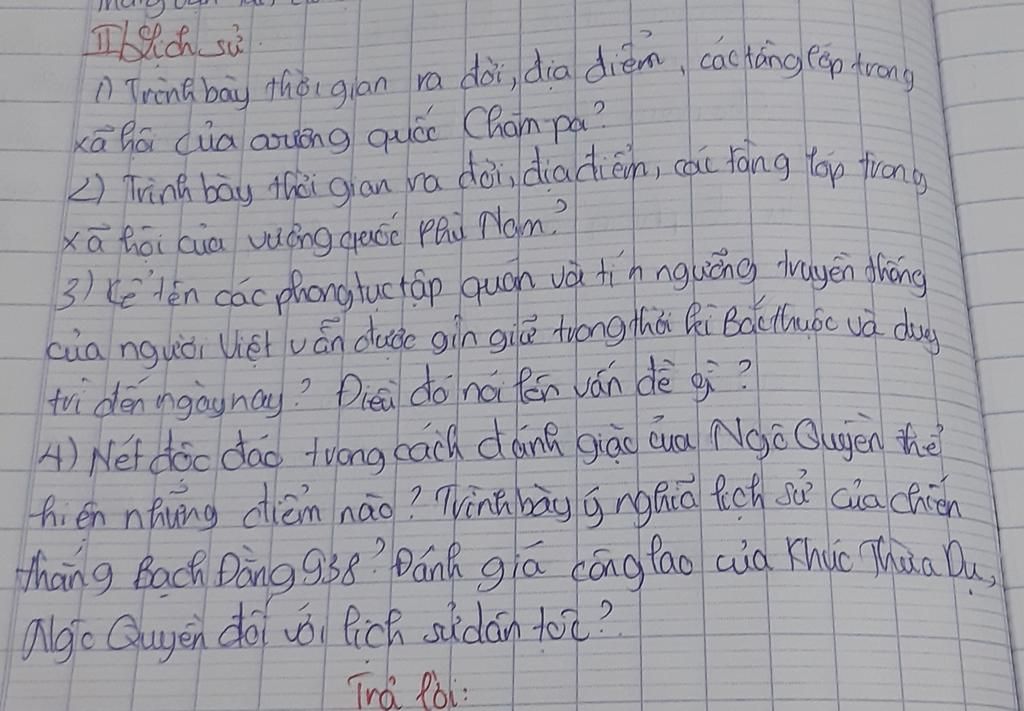 II) Lịch sử
1) Trình bày thời gian ra đời, địa điểm, các tầng lớp trong
xã hội của vương quốc Chăm-pa?
2) Trình bày thời gian ra đời, địa điểm, các tầng lớp trong
xã hội của vương quốc Phù Nam?
3) Kể tên các phong tục tập quán và tín ngưỡng truyền thống
của người Việt vẫn được gìn giữ trong thời kì Bắc thuộc và duy
trì đến ngày nay? Điều đó nói lên vấn đề gì?
4) Nét độc đáo trong cách đánh giặc của Ngô Quyền thể
hiện những điểm nào? Trình bày ý nghĩa lịch sử của chiến
thắng Bạch Đằng 938? Đánh giá công lao của Khúc Thừa Dụ,
Ngô Quyền đối với lịch sử dân tộc?
Trả lời: